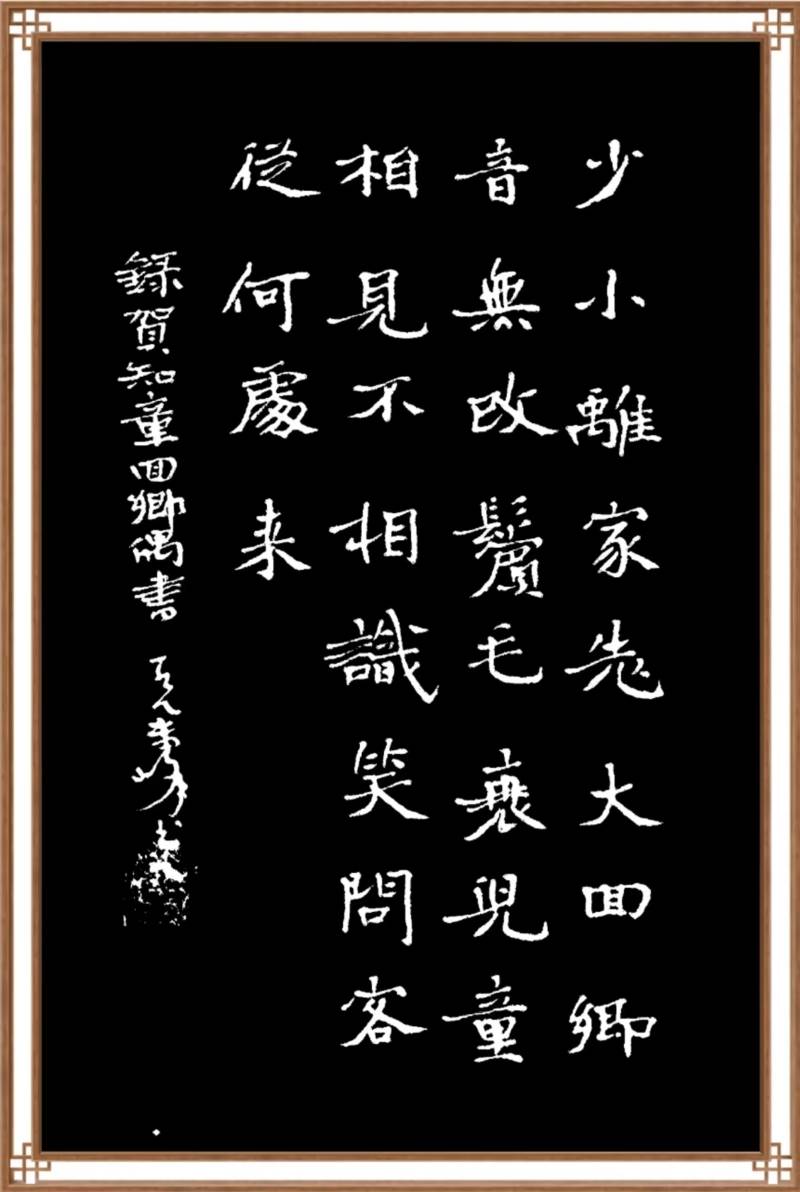 少小離家老大回鄉
音無改鬢毛衰兒童
相見不相識笑問客
從何處来
錄賀知童回鄉偶書